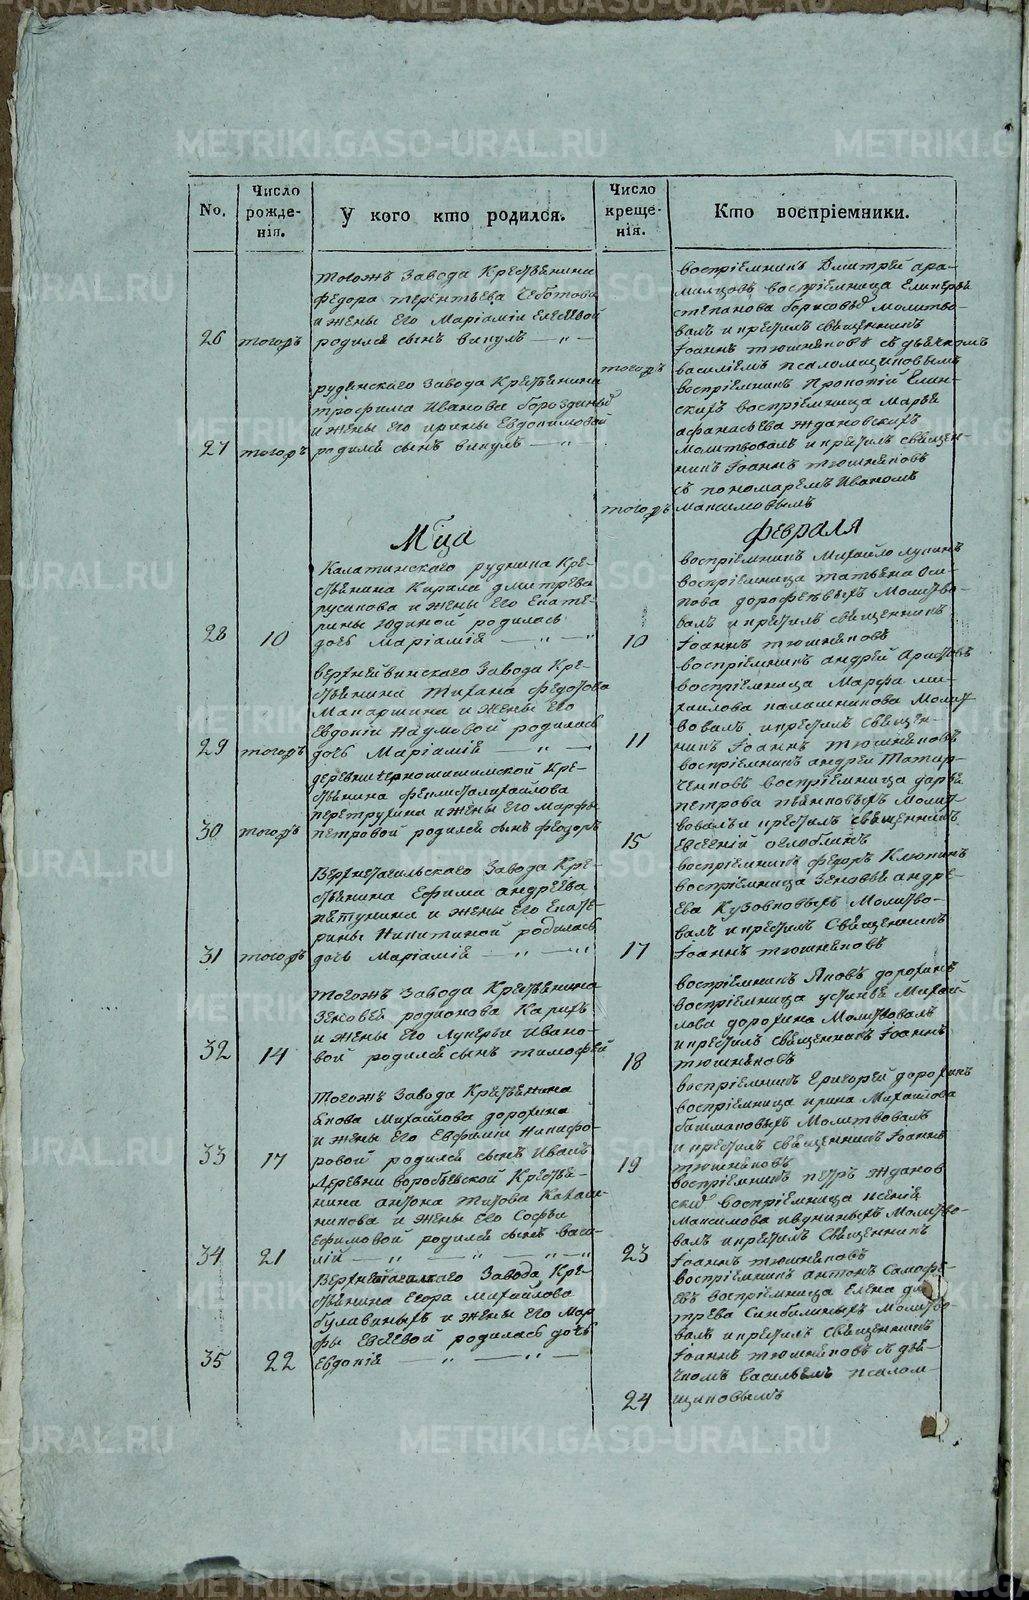 No.
Число рожде-нія.
У кого кто родился.
Число креще-нія.
Кто воспріемники.
тогожъ Завода Крестьянина
Федора терентьева Чеботова
и жены Его Маріаміи Елесеевой
26 тогожъ родился сынъ викулъ
тогожъ
воспріемникъ Дмитрей ара-
милцовъ воспріемница Екатерина
степанова борисовыхъ молитво-
валъ и крестилъ священникъ
Іоаннъ тюшняковъ съ дьячкомъ
василіемъ псаломщиковымъ
рудянскаго Завода Крестьянина
трофима Иванова бороздина
и жены Его ирины Евдокимовой
27 тогожъ родился сынъ викулъ
тогожъ
воспріемникъ Прокопій Елан-
скихъ воспріемница Марья
афанасьева ждановскихъ
молитвовалъ и крестилъ священ-
никъ Іоаннъ тюшняковъ
съ пономаремъ Иваномъ
максимовымъ
Мца
февраля
Калатинскаго рудника Кре-
стьянина Кирила дмитрева
русакова и жены Его Екате-
рины Юдиной родилась
28 10 дочь Маріамія
10
воспріемникъ Михайло лукинъ
воспріемница татьяна Оси-
пова дорофеевыхъ Молитво-
валъ и крестилъ священникъ
Іоаннъ тюшняковъ
верхнейвинскаго Завода Кре-
стьянина Тихана Федотова
Макаршина и жены Его
Евдокіи Наумовой родилась
29 тогожъ дочь Маріамія
11
воспріемникъ андрей
воспріемница Марфа ми-
хаилова калашникова Молит-
вовалъ и крестилъ священ-
никъ Іоаннъ тюшняковъ
деревни черношишимской Кре-
стьянина феклиста михайлова
перетрухина и жены Его марфы
30 тогожъ петровой родился сынъ феодоръ
15
воспріемникъ андрей Татар-
ченковъ воспріемница дарья
петрова пьянковыхъ молит-
вовалъ и крестилъ священникъ
Евгений оглоблинъ
Верхнетагильскаго Завода Кре-
стьянина Ефима андреева
петунина и жены Его Екате-
рины Никитиной родилась
31 тогожъ дочь Маріамія
17
воспріемникъ федоръ Клюкинъ
воспріемница Зеновья андре-
ева Кузовковыхъ Молитво-
валъ и крестилъ Священникъ
Іоаннъ тюшняковъ
тогожъ Завода Крестьянина
Зеновея родионова
и жены Его Лукерьи Ивано-
32 14 вой родился сынъ тимофей
18
воспріемникъ Яковъ дорохинъ
воспріемница устинья Михай-
лова дорохина Молитвовалъ
и крестилъ священникъ Іоаннъ
тюшняковъ
Тогожъ Завода Крестьянина
Якова Михайлова дорохина
и жены Его Евфиміи Никифо-
33 17 ровой родился сынъ Иванъ
19
воспріемникъ Григорей дорохинъ
воспріемница ирина Михайлова
башмаковыхъ Молитвовалъ
и крестилъ священникъ Іоаннъ
тюшняковъ
Деревни воробьевской Крестья-
нина антона титова Калаш-
никова и жены Его Софьи
Ефимовой родился сынъ васи-
34 21 лій
23
воспріемникъ петръ жданов-
ской воспріемница ксенія
максимова Молитво-
валъ и крестилъ Священникъ
Іоаннъ тюшняковъ
Верхнетагильскаго Завода Кре-
стьянина Егора михайлова
булавиныхъ и жены Его Мар-
фы Евсеевой родилась дочь
35 22 Евдокія
24
воспріемникъ антонъ Самофе-
евъ воспріемница Елена дми-
трева Молитво-
валъ и крестилъ Священникъ
Іоаннъ тюшняковъ съ дья-
чкомъ васильемъ псалом-
щиковымъ
METRIKI.GASO-URAL.RU